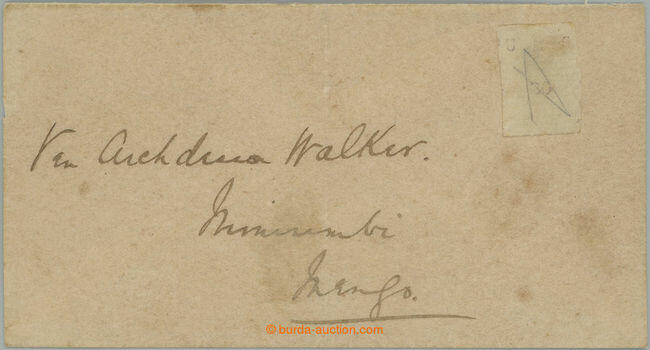 U G
30
Ven Archdeacon Walker.
Namirembi
Mengo.
© burda-auction.com